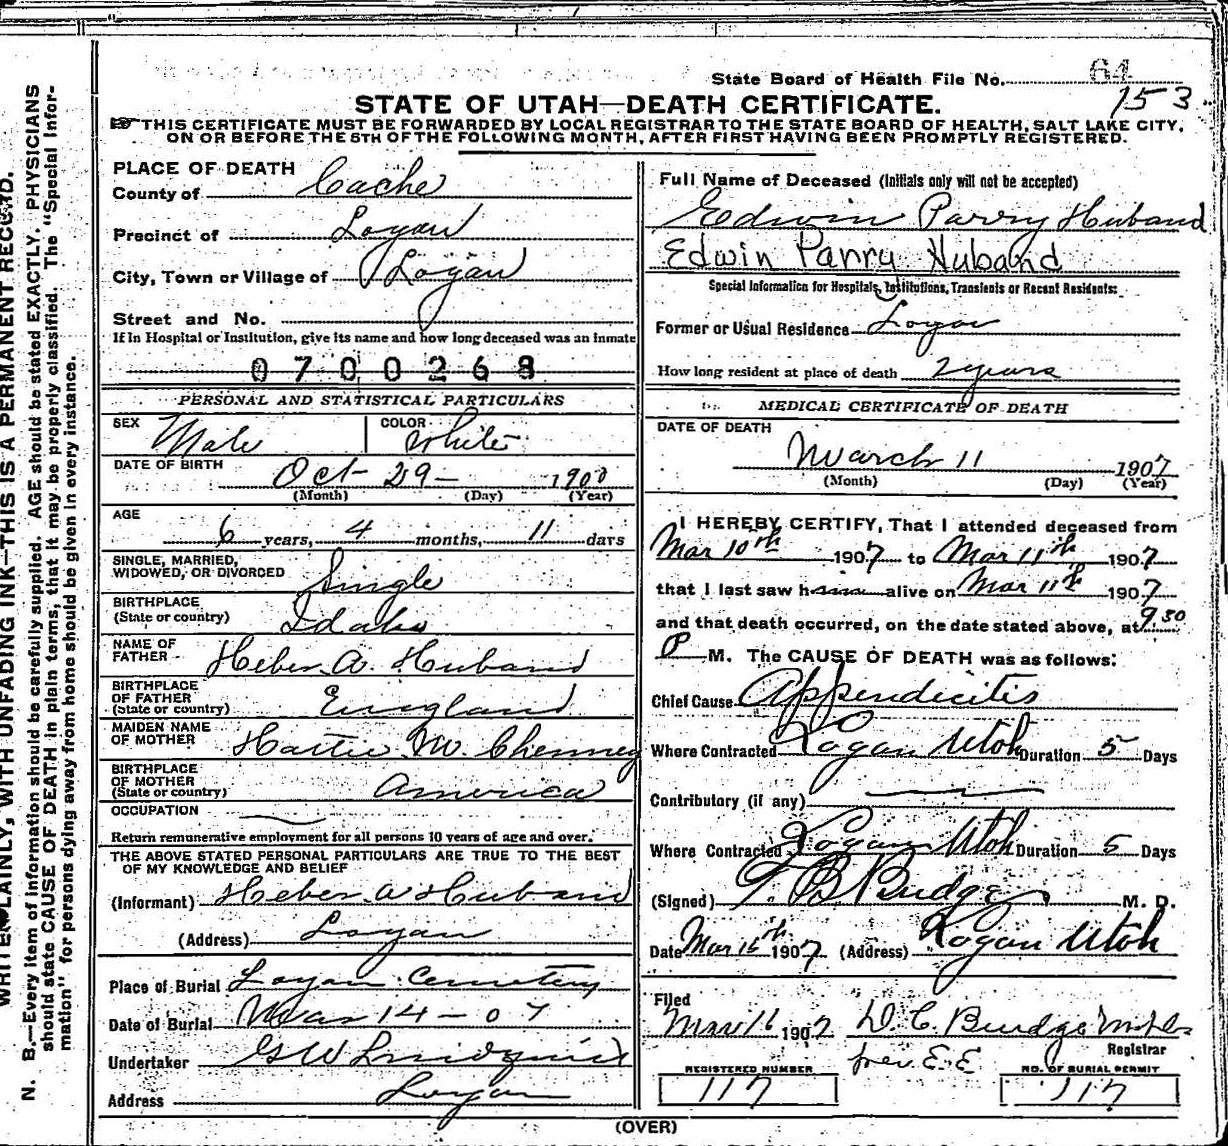 State Board of Health File No. 64
153
STATE OF UTAH—DEATH CERTIFICATE.
THIS CERTIFICATE MUST BE FORWARDED BY LOCAL REGISTRAR TO THE STATE BOARD OF HEALTH, SALT LAKE CITY,
ON OR BEFORE THE 5TH OF THE FOLLOWING MONTH, AFTER FIRST HAVING BEEN PROMPTLY REGISTERED.
PLACE OF DEATH
County of Cache
Precinct of Logan
City, Town or Village of Logan
Street and No.
If in Hospital or Institution, give its name and how long deceased was an inmate
0700268
PERSONAL AND STATISTICAL PARTICULARS
SEX Male COLOR White
DATE OF BIRTH Oct - 29 - 1900
(Month) (Day) (Year)
AGE 6 years, 4 months, 11 days
SINGLE, MARRIED,
WIDOWED, OR DIVORCED Single
BIRTHPLACE
(State or country) Idaho
NAME OF
FATHER Heber A. Huband
BIRTHPLACE
OF FATHER
(State or country) England
MAIDEN NAME
OF MOTHER Hattie M. Chenney
BIRTHPLACE
OF MOTHER
(State or country) America
OCCUPATION
Return remunerative employment for all persons 10 years of age and over.
THE ABOVE STATED PERSONAL PARTICULARS ARE TRUE TO THE BEST
OF MY KNOWLEDGE AND BELIEF
(Informant) Heber A Huband
(Address) Logan
Place of Burial Logan Cemetery
Date of Burial Mar 14 - 07
Undertaker GW Lindquist
Address Logan
Full Name of Deceased (Initials only will not be accepted)
Edwin Parry Huband
Edwin Parry Huband
Special Information for Hospitals, Institutions, Transients or Recent Residents:
Former or Usual Residence Logan
How long resident at place of death 2 years
MEDICAL CERTIFICATE OF DEATH
DATE OF DEATH
March 11 1907
(Month) (Day) (Year)
I HEREBY CERTIFY, That I attended deceased from
Mar 10th 1907 to Mar 11th 1907
that I last saw him alive on Mar 11th 1907
and that death occurred, on the date stated above, at 9.30
P M. The CAUSE OF DEATH was as follows:
Chief Cause Appendicitis
Where Contracted Logan Utah Duration 5 Days
Contributory (if any)
Where Contracted Logan Utah Duration 5 Days
(Signed) T. B. Budge M. D.
Date Mar 15th 1907 (Address) Logan Utah
Filed
Mar 16 1907 D. C. Budge
Registrar
REGISTERED NUMBER
117
NO. OF BURIAL PERMIT
117
(OVER)
WRITE PLAINLY, WITH UNFADING INK—THIS IS A PERMANENT RECORD.
N. B.—Every item of information should be carefully supplied. AGE should be stated EXACTLY. PHYSICIANS
should state CAUSE OF DEATH in plain terms, that it may be properly classified. The "Special Infor-
mation" for persons dying away from home should be given in every instance.